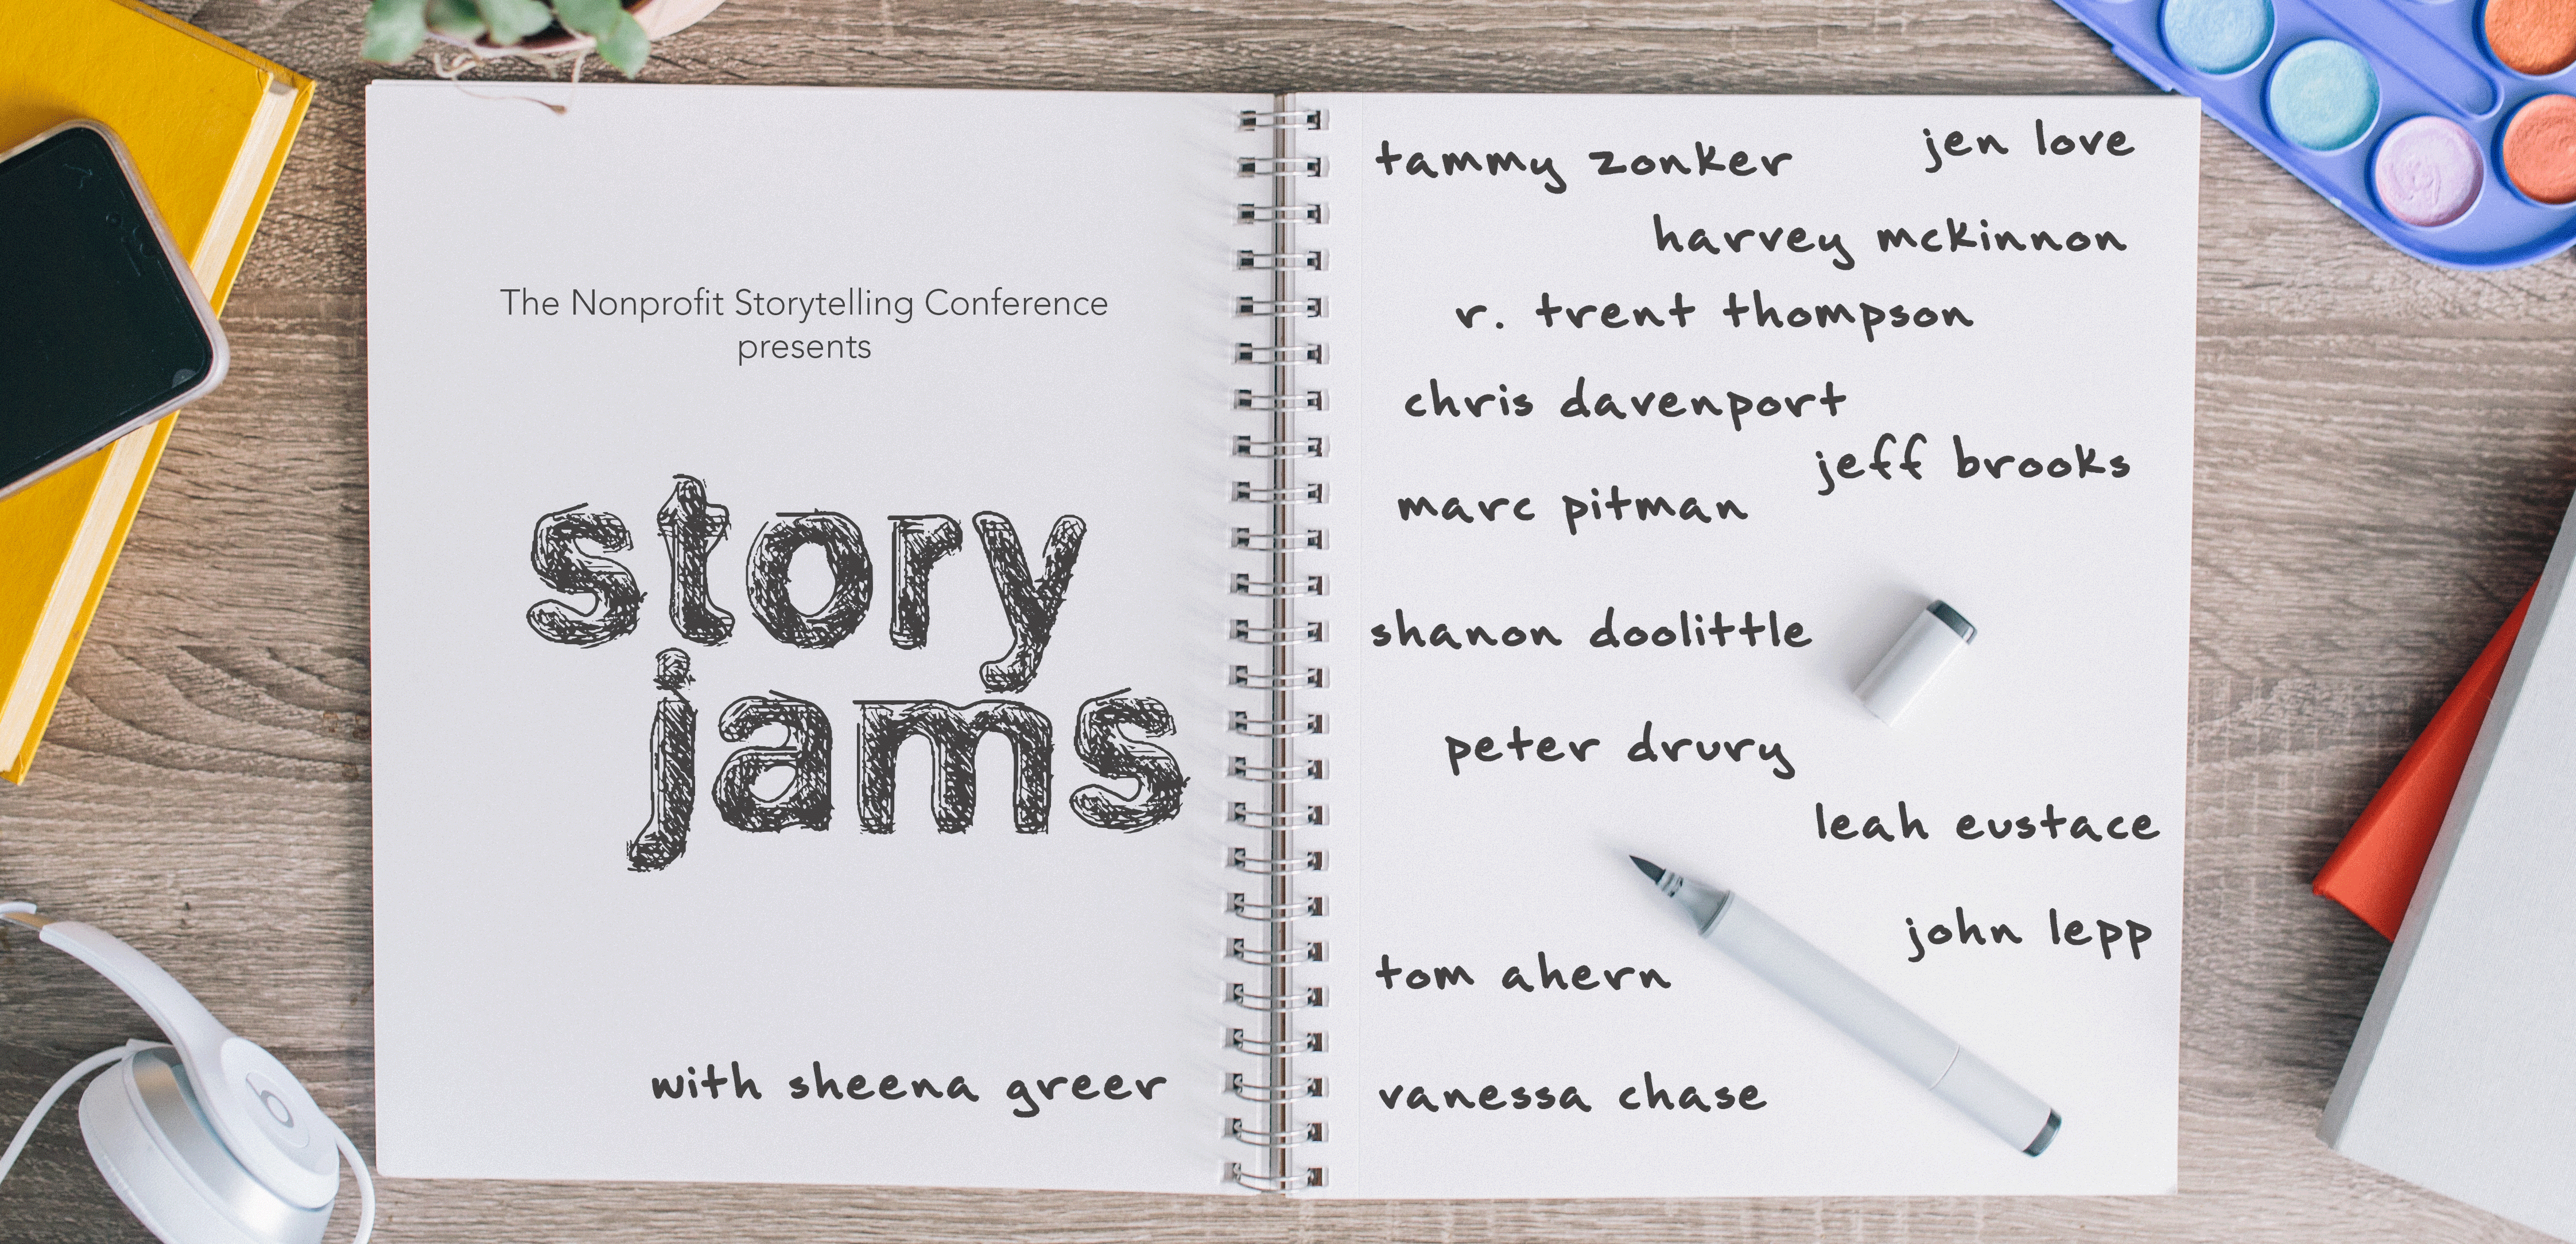 The Nonprofit Storytelling Conference
presents
story
jams
with sheena greer
tammy zonker
jen love
harvey mckinnon
r. trent thompson
chris davenport
jeff brooks
marc pitman
shanon doolittle
peter drury
leah eustace
john lepp
tom ahern
vanessa chase